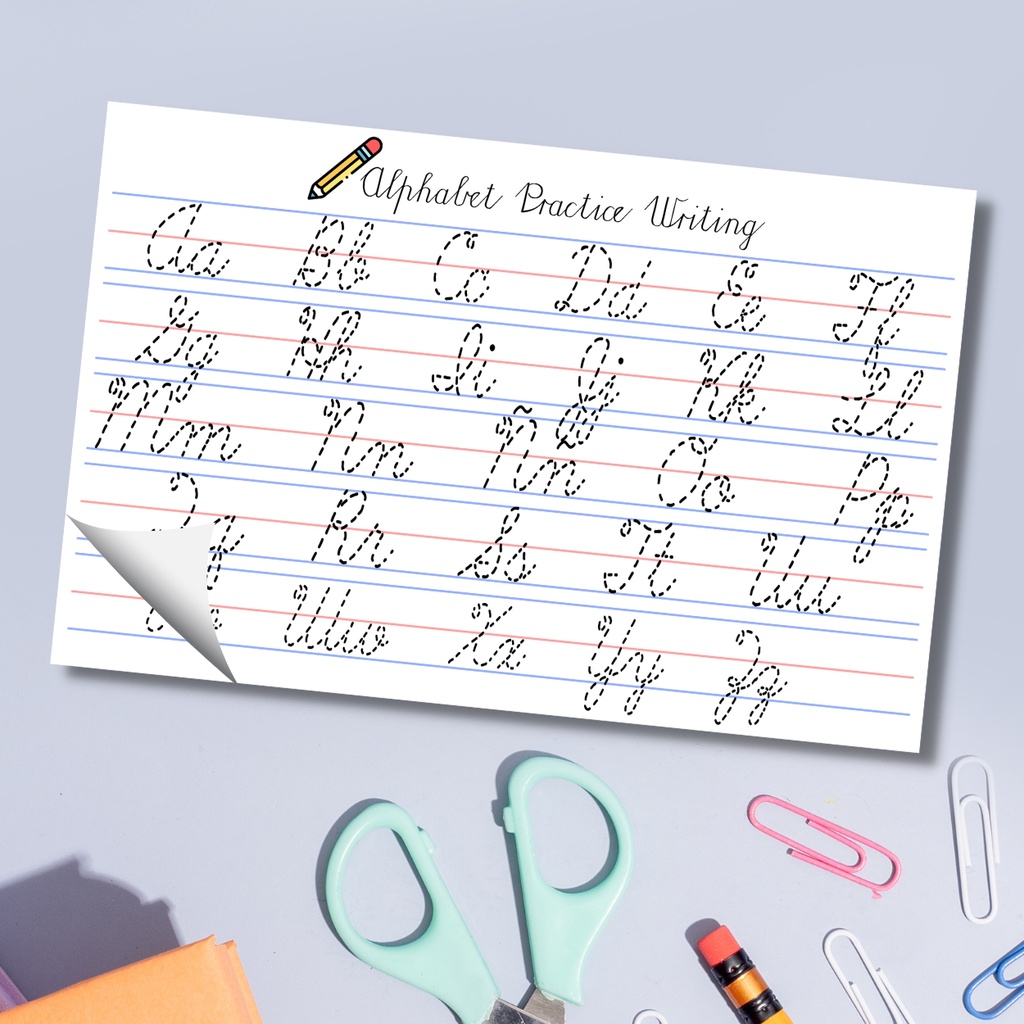 Alphabet Practice Writing
Aa Bb Cc Dd Ee Ff
Gg Hh Ii Jj Kk Ll
Mm Nn Ññ Oo Pp
Qq Rr Ss Tt Uu
Ww Xx Yy Zz